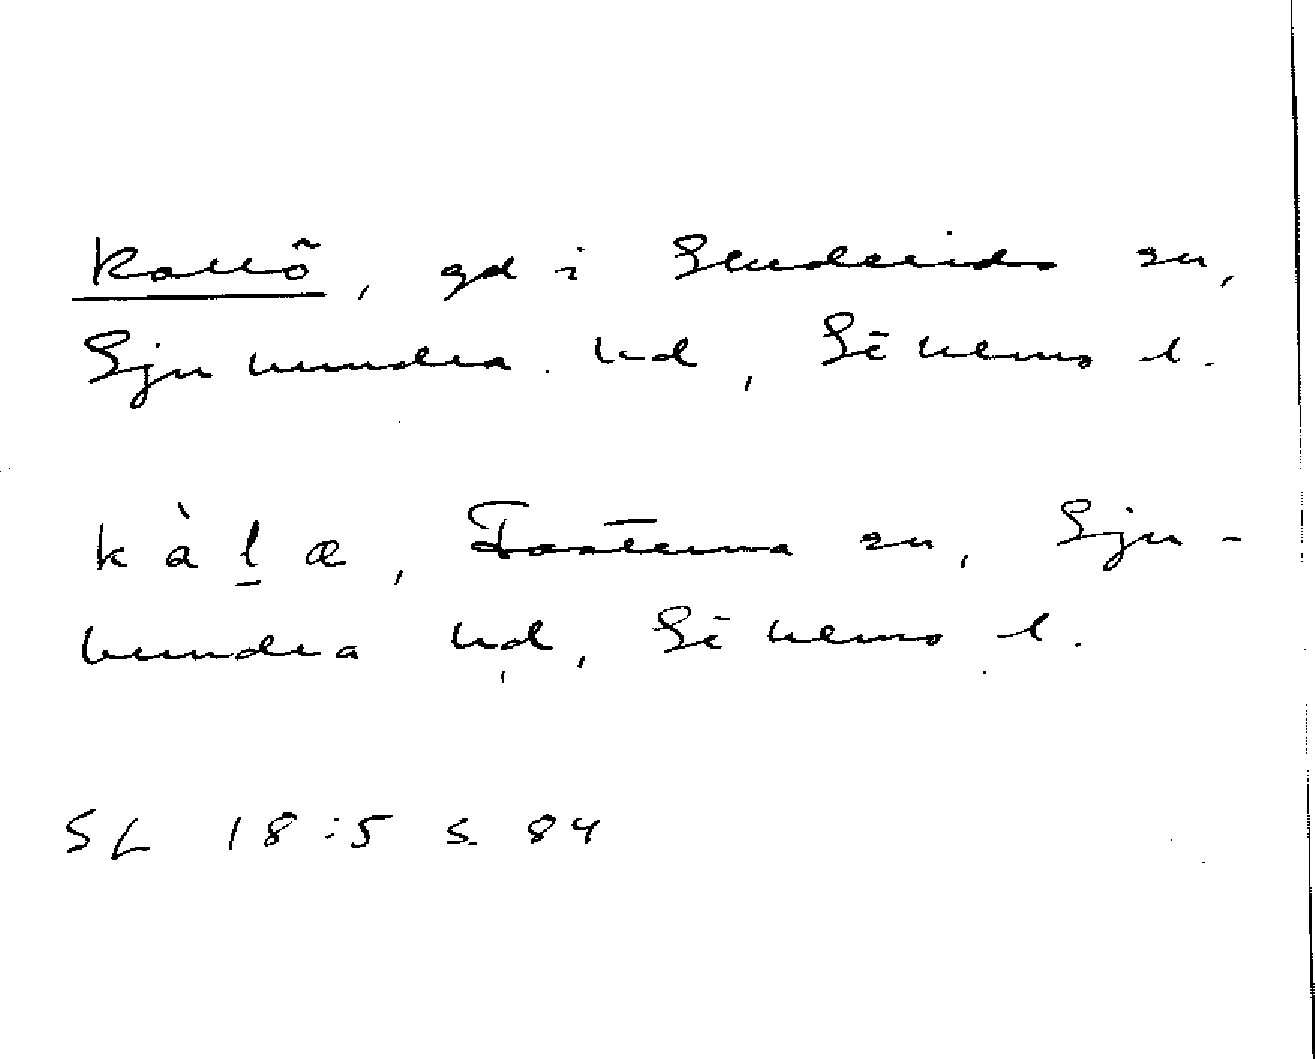 Kallö, gd i Skederids sn,
Sjuhundra hd, Sthlms l.
k à ḻ æ, Fasterna sn, Sju-
hundra hd, Sthlms l.
SL 18:5 s. 84